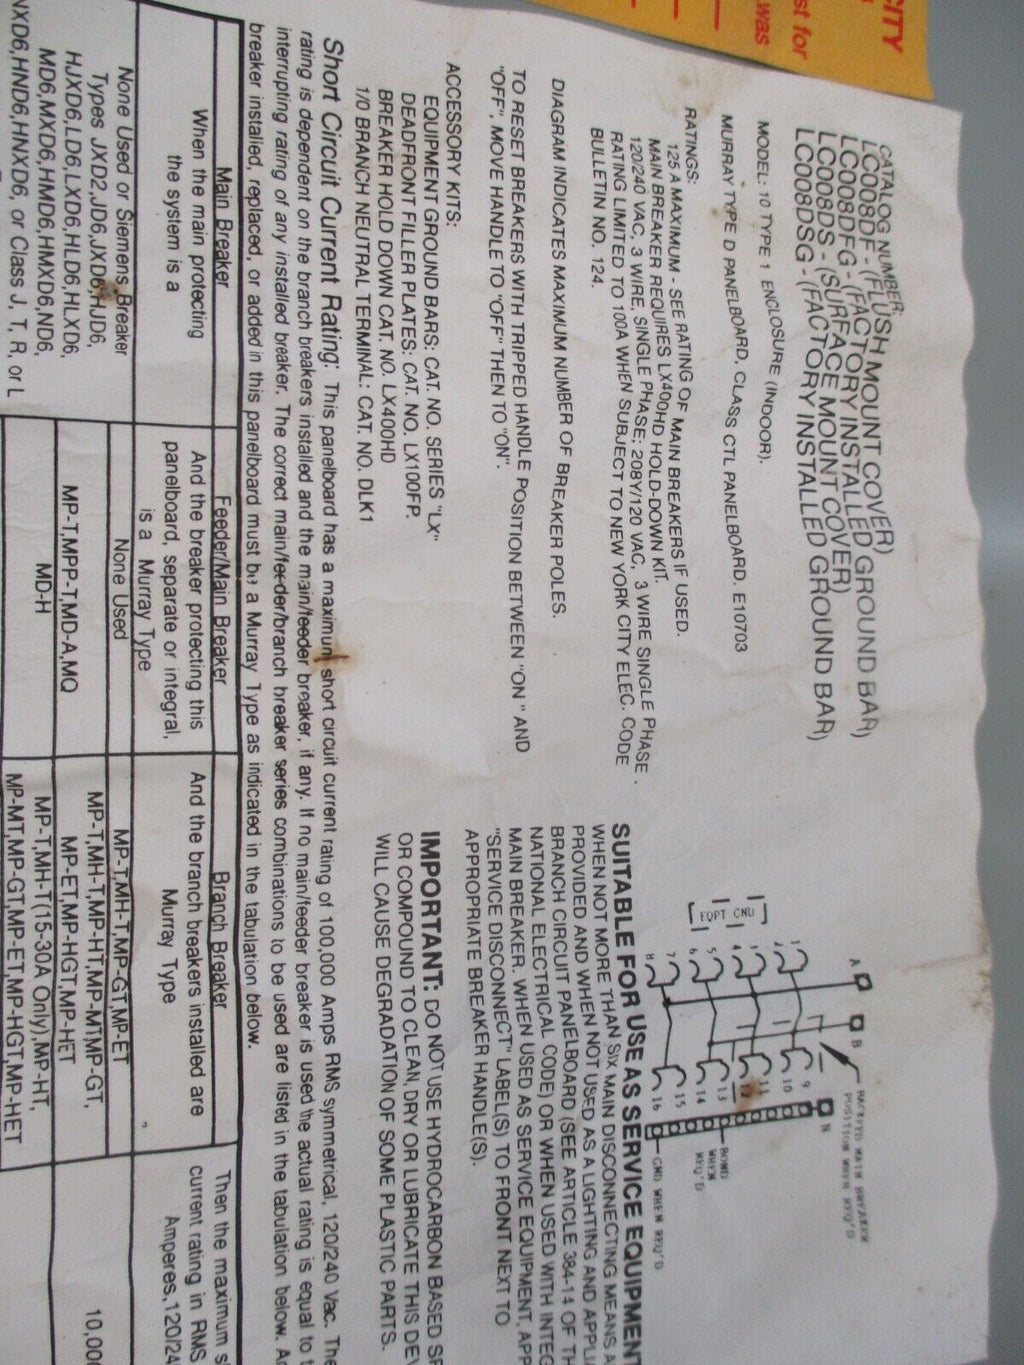 CITY
st for
was
CATALOG NUMBER:
LC008DF - (FLUSH MOUNT COVER)
LC008DFG - (FACTORY INSTALLED GROUND BAR)
LC008DS - (SURFACE MOUNT COVER)
LC008DSG - (FACTORY INSTALLED GROUND BAR)
MODEL: 10 TYPE 1 ENCLOSURE (INDOOR).
MURRAY TYPE D PANELBOARD. CLASS CTL PANELBOARD. E10703
RATINGS:
125 A MAXIMUM - SEE RATING OF MAIN BREAKERS IF USED.
MAIN BREAKER REQUIRES LX400HD HOLD-DOWN KIT.
120/240 VAC, 3 WIRE, SINGLE PHASE; 208Y/120 VAC, 3 WIRE SINGLE PHASE.
RATING LIMITED TO 100A WHEN SUBJECT TO NEW YORK CITY ELEC. CODE
BULLETIN NO. 124.
DIAGRAM INDICATES MAXIMUM NUMBER OF BREAKER POLES.
TO RESET BREAKERS WITH TRIPPED HANDLE POSITION BETWEEN "ON" AND
"OFF", MOVE HANDLE TO "OFF" THEN TO "ON".
ACCESSORY KITS:
EQUIPMENT GROUND BARS: CAT. NO. SERIES "LX"
DEADFRONT FILLER PLATES: CAT. NO. LX100FP.
BREAKER HOLD DOWN CAT. NO. LX400HD
1/0 BRANCH NEUTRAL TERMINAL: CAT. NO. DLK1
A B N
BACKFED MAIN BREAKER
POSITION WHEN REQ'D
EQPT GND
1 2 3 4 5 6 7 8
9 10 11 12 13 14 15 16
BOND
WHEN
REQ'D
GND WHEN REQ'D
SUITABLE FOR USE AS SERVICE EQUIPMENT
WHEN NOT MORE THAN SIX MAIN DISCONNECTING MEANS A
PROVIDED AND WHEN NOT USED AS A LIGHTING AND APPLI
BRANCH CIRCUIT PANELBOARD (SEE ARTICLE 384-14 OF TH
NATIONAL ELECTRICAL CODE) OR WHEN USED WITH INTEG
MAIN BREAKER. WHEN USED AS SERVICE EQUIPMENT, APP
"SERVICE DISCONNECT" LABEL(S) TO FRONT NEXT TO
APPROPRIATE BREAKER HANDLE(S).
IMPORTANT: DO NOT USE HYDROCARBON BASED SP
OR COMPOUND TO CLEAN, DRY OR LUBRICATE THIS DEV
WILL CAUSE DEGRADATION OF SOME PLASTIC PARTS.
Short Circuit Current Rating: This panelboard has a maximum short circuit current rating of 100,000 Amps RMS symmetrical, 120/240 Vac. The
rating is dependent on the branch breakers installed and the main/feeder breaker, if any. If no main/feeder breaker is used the actual rating is equal to t
interrupting rating of any installed breaker. The correct main/feeder/branch breaker series combinations to be used are listed in the tabulation below. A
breaker installed, replaced, or added in this panelboard must be a Murray Type as indicated in the tabulation below.
Main Breaker
Feeder/Main Breaker
Branch Breaker
When the main protecting
the system is a
And the breaker protecting this
panelboard, separate or integral,
is a Murray Type
And the branch breakers installed are
Murray Type
Then the maximum s
current rating in RMS
Amperes, 120/24
None Used or Siemens Breaker
Types JXD2,JD6,JXD6,HJD6,
HJXD6,LD6,LXD6,HLD6,HLXD6,
MD6,MXD6,HMD6,HMXD6,ND6,
NXD6,HND6,HNXD6, or Class J, T, R, or L
None Used
MP-T,MPP-T,MD-A,MQ
MD-H
MP-T,MH-T,MP-GT,MP-ET
MP-T,MH-T,MP-HT,MP-MT,MP-GT,
MP-ET,MP-HGT,MP-HET
MP-T,MH-T(15-30A Only),MP-HT,
MP-MT,MP-GT,MP-ET,MP-HGT,MP-HET
10,000